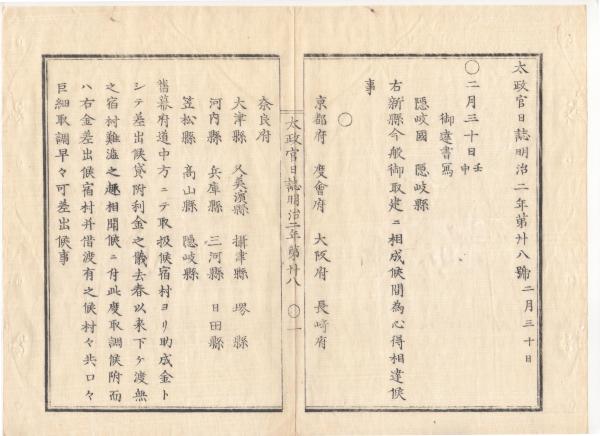 太政官日誌明治二年第廿八號 二月三十日
〇二月三十日 壬申
御達書寫
隠岐國 隠岐縣
右新縣今般御取建ニ相成候間為心得相達候
事
〇
京都府 度會府 大阪府 長崎府
太政官日誌明治二年第廿八 〇 一
奈良府
大津縣 久美濱縣 攝津縣 堺縣
河内縣 兵庫縣 三河縣 日田縣
笠松縣 高山縣 隠岐縣
舊幕府道中方ニテ取扱候宿村ヨリ助成金ト
シテ差出候貸附利金之儀去春以来下ケ渡無
之宿村難澁之趣相聞候ニ付此度取調候附而
ハ右金差出候宿村并借渡有之候村々共口々
巨細取調早々可差出候事